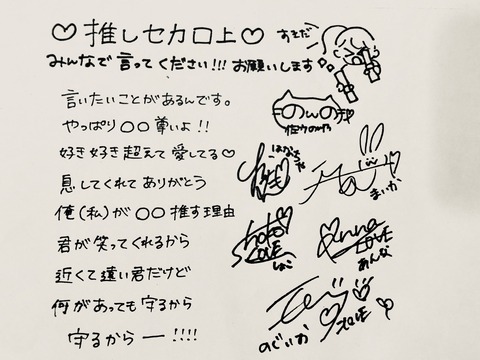 ♡推しセカ口上♡
みんなで言ってください!!! お願いします
言いたいことがあるんです。
やっぱり○○尊いよ!!
好き好き超えて愛してる♡
息してくれてありがとう
俺(私)が○○推す理由
君が笑ってくれるから
近くて遠い君だけど
何があっても守るから
守るからー!!!!
のんの
はなちゃん
まいか
Shoko
LOVE
しょこ
anna
LOVE
あんな
のぐいか